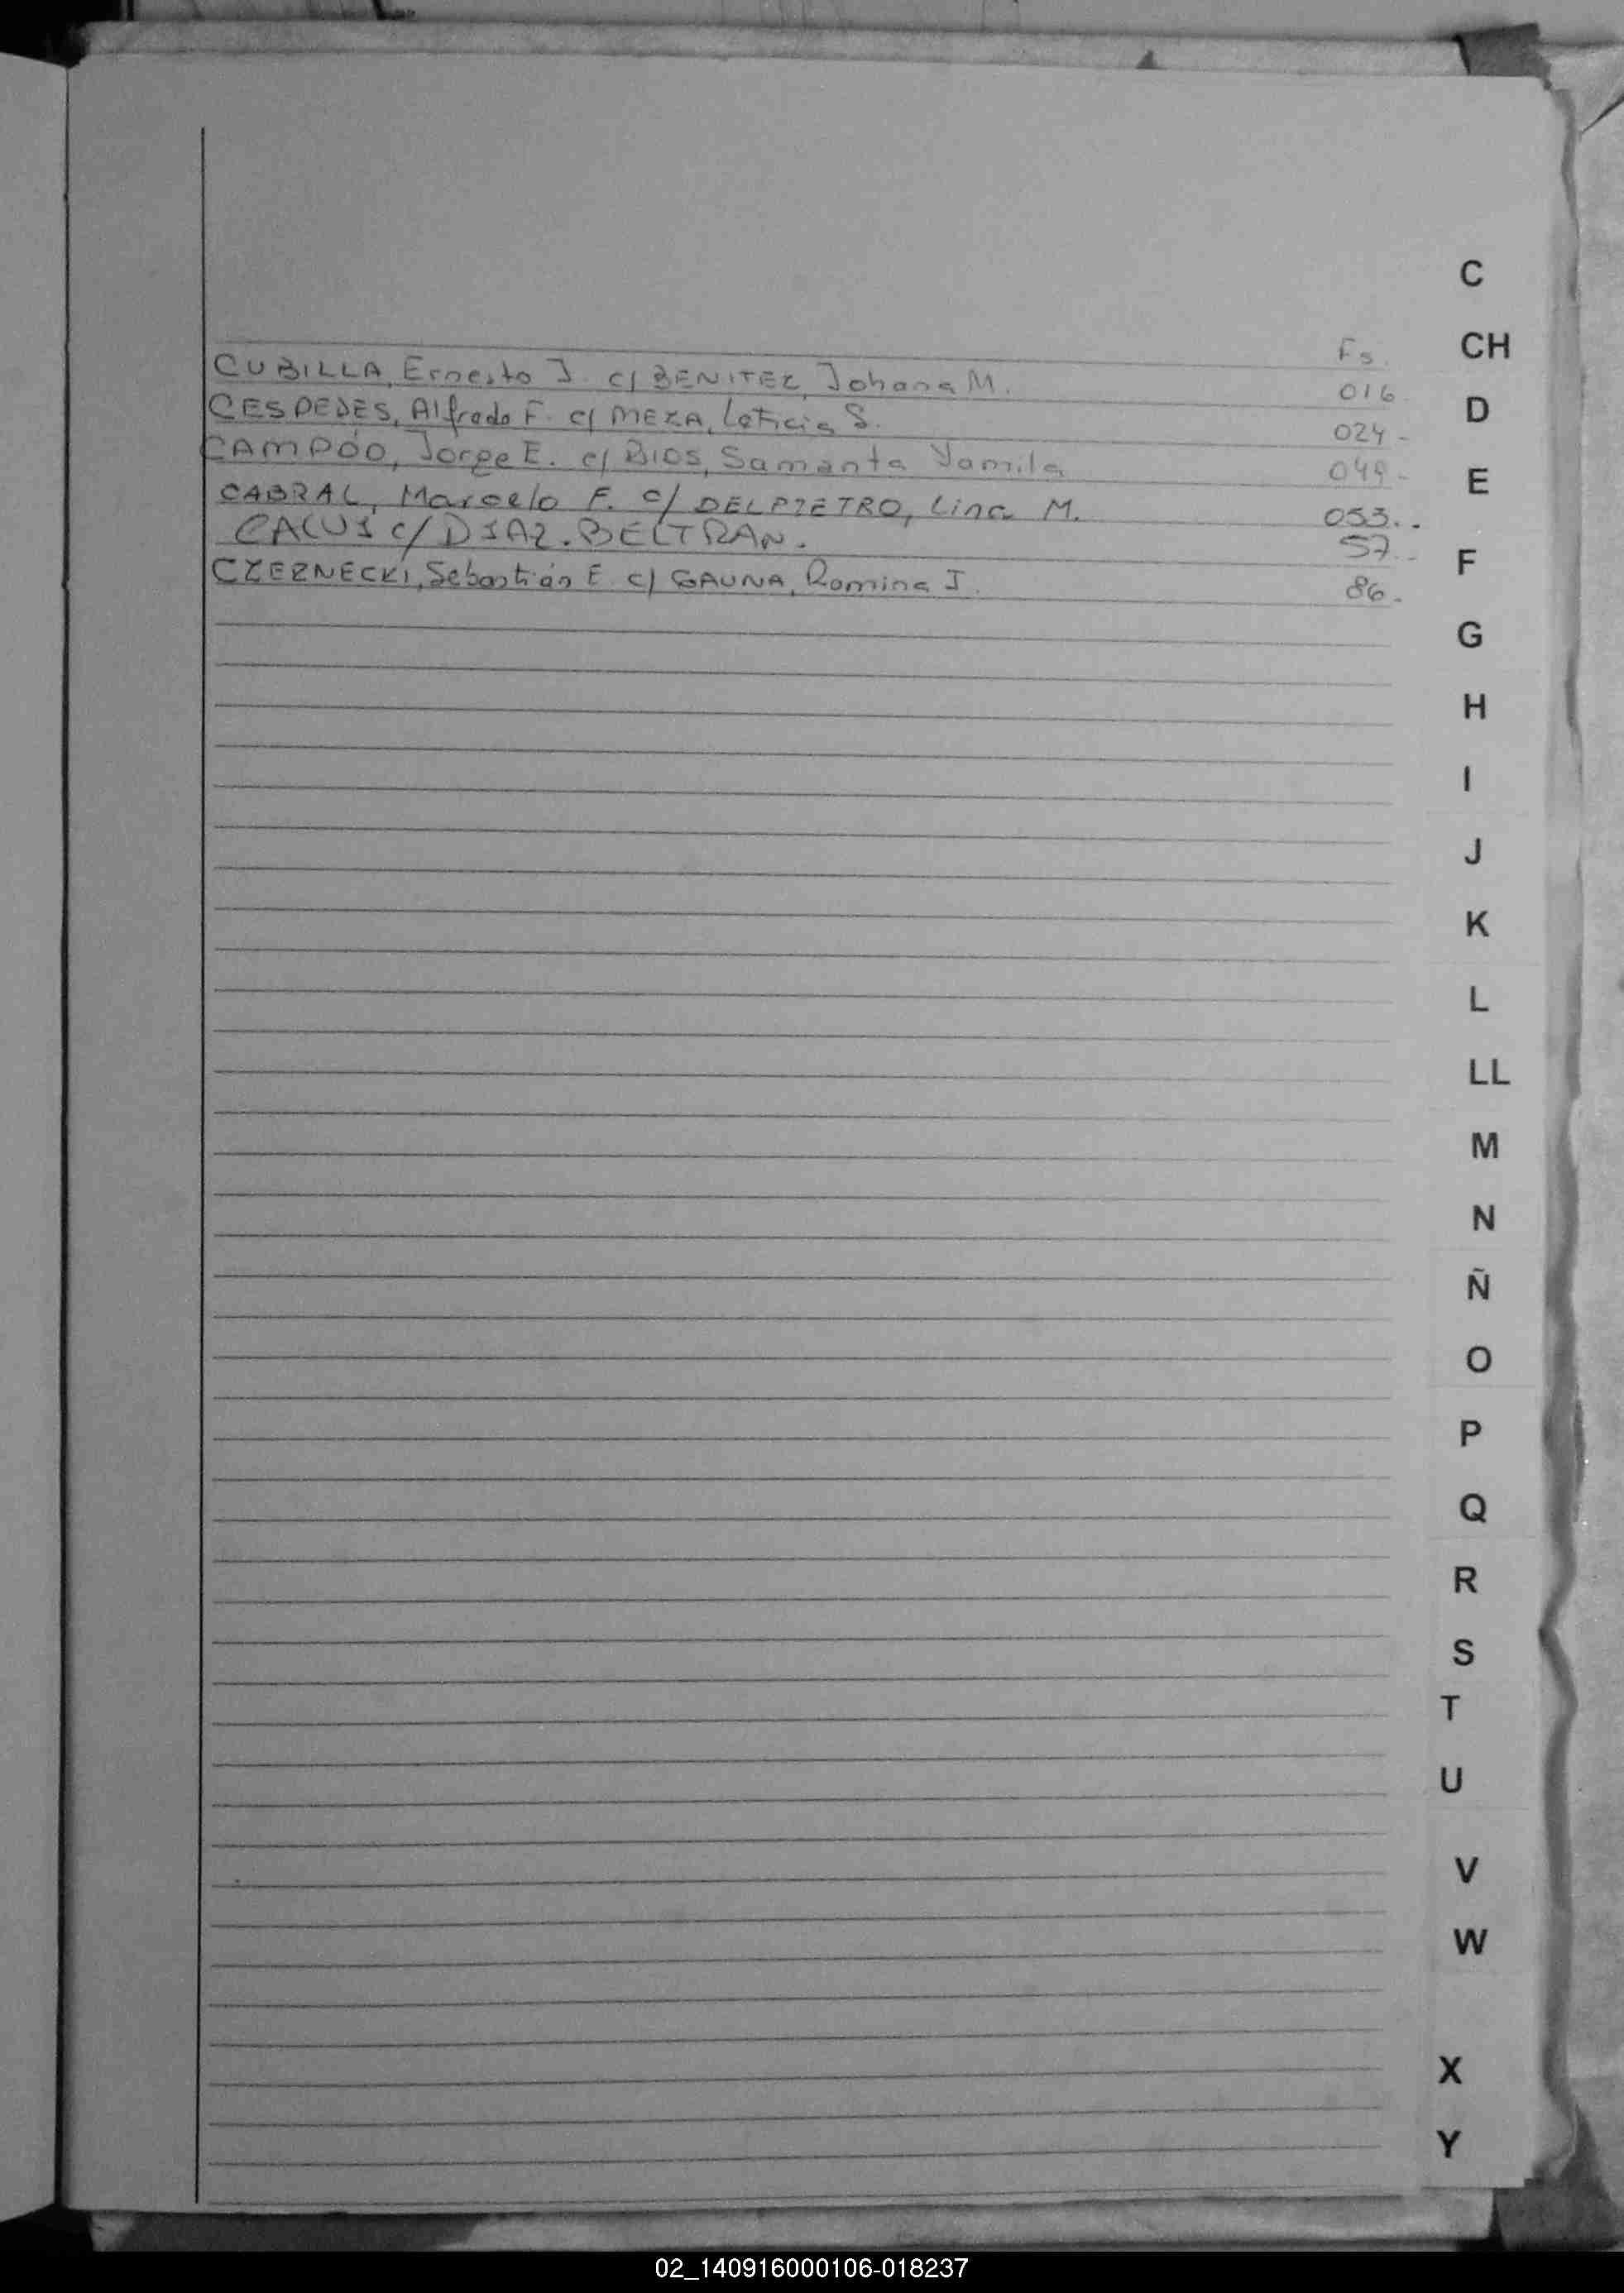 Fs.
CUBILLA, Ernesto J. c/ BENITEZ, Johana M. 016
CESPEDES, Alfredo F. c/ MEZA, Leticia S. 024-
CAMPÓO, Jorge E. c/ BIOS, Samanta Yamila 049-
CABRAL, Marcelo F. c/ DELPIETRO, Lina M. 053..
CALUI c/ DIAZ. BELTRAN. 57-
CZERNECKI, Sebastián E. c/ GAUNA, Romina J. 86.
C
CH
D
E
F
G
H
I
J
K
L
LL
M
N
Ñ
O
P
Q
R
S
T
U
V
W
X
Y
02_140916000106-018237